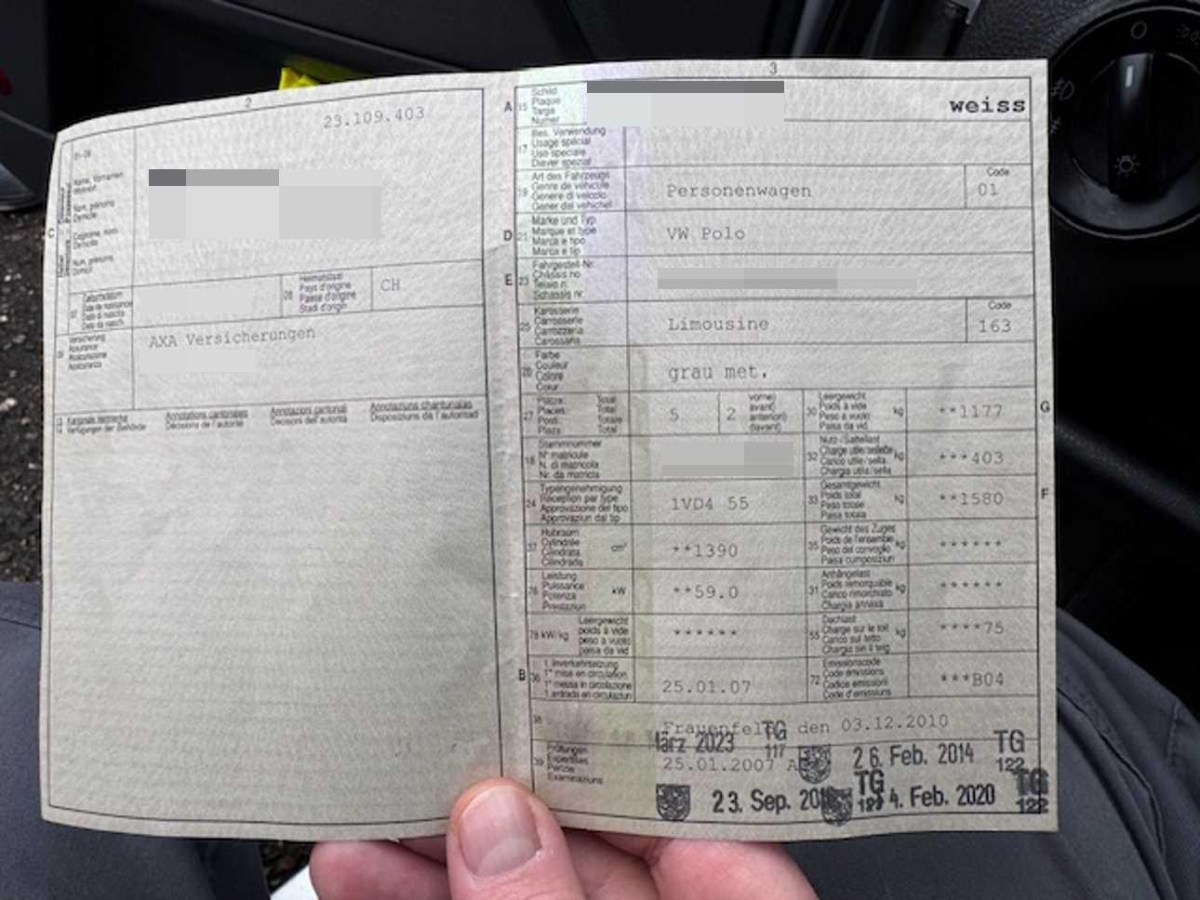 2
23.109.403
01-06
C
Name, Vornamen
Wohnort
Nom, prénoms
Domicile
Cognome, nomi
Domicilio
Num, prenoms
Domicil
07
Geburtsdatum
Date de naissance
Data di nascita
Data da nasch.
08
Heimatstaat
Pays d'origine
Paese d'origine
Stadi d'origin
CH
09
Versicherung
Assurance
Assicurazione
Assicuranza
AXA Versicherungen
13
14
Kantonale Vermerke
Verfügungen der Behörde
Annotations cantonales
Décisions de l'autorité
Annotazioni cantonali
Decisioni dell'autorità
Annotaziuns chantunalas
Disposiziuns da l'autoritad
3
A
15
Schild
Plaque
Targa
Numer
weiss
17
Bes. Verwendung
Usage spécial
Uso speciale
Diever spezial
19
Art des Fahrzeugs
Genre de véhicule
Genere di veicolo
Gener dal vehichel
Personenwagen
Code
01
D
21
Marke und Typ
Marque et type
Marca e tipo
Marca e tip
VW Polo
E
23
Fahrgestell-Nr.
Châssis no
Telaio n.
Schassis nr.
25
Karosserie
Carrosserie
Carrozzeria
Carossaria
Limousine
Code
163
26
Farbe
Couleur
Colore
Colur
grau met.
27
Plätze Total
Places Total
Posti Totale
Plazs Total
5
2
vorne)
avant)
anteriori)
davant)
30
Leergewicht
Poids à vide
Peso a vuoto
Paisa da vid
kg
**1177
G
18
Stammnummer
N° matricule
N. di matricola
Nr. da matricla
32
Nutz-/Sattellast
Charge utile/sellette
Carico utile/sella
Chargia utila/sella
kg
***403
24
Typengenehmigung
Réception par type
Approvazione del tipo
Approvaziun dal tip
1VD4 55
33
Gesamtgewicht
Poids total
Peso totale
Paisa totala
kg
**1580
F
37
Hubraum
Cylindrée
Cilindrata
Cilindrada
cm³
**1390
35
Gewicht des Zuges
Poids de l'ensemble
Peso del convoglio
Paisa cumposiziun
kg
******
76
Leistung
Puissance
Potenza
Prestaziun
kW
**59.0
31
Anhängelast
Poids remorquable
Carico rimorchiato
Chargia annexa
kg
******
78 kW/kg
Leergewicht
poids à vide
peso a vuoto
paisa da vid
******
55
Dachlast
Charge sur le toit
Carico sul tetto
Chargia sin il tetg
kg
****75
B
36
1. Inverkehrsetzung
1re mise en circulation
1a messa in circolazione
1. entrada en circulaziun
25.01.07
72
Emissionscode
Code émissions
Codice emissioni
Code d'emissiuns
***B04
38
Frauenfeld, den 03.12.2010
39
Prüfungen
Expertises
Perizie
Examinaziuns
März 2023 TG 117
25.01.2007 A
26. Feb. 2014 TG 122
23. Sep. TG
4. Feb. 2020 TG 122